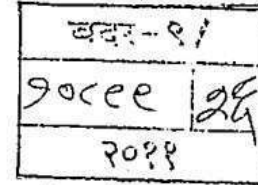 बदर-९/
१०८९९ २६
२०११